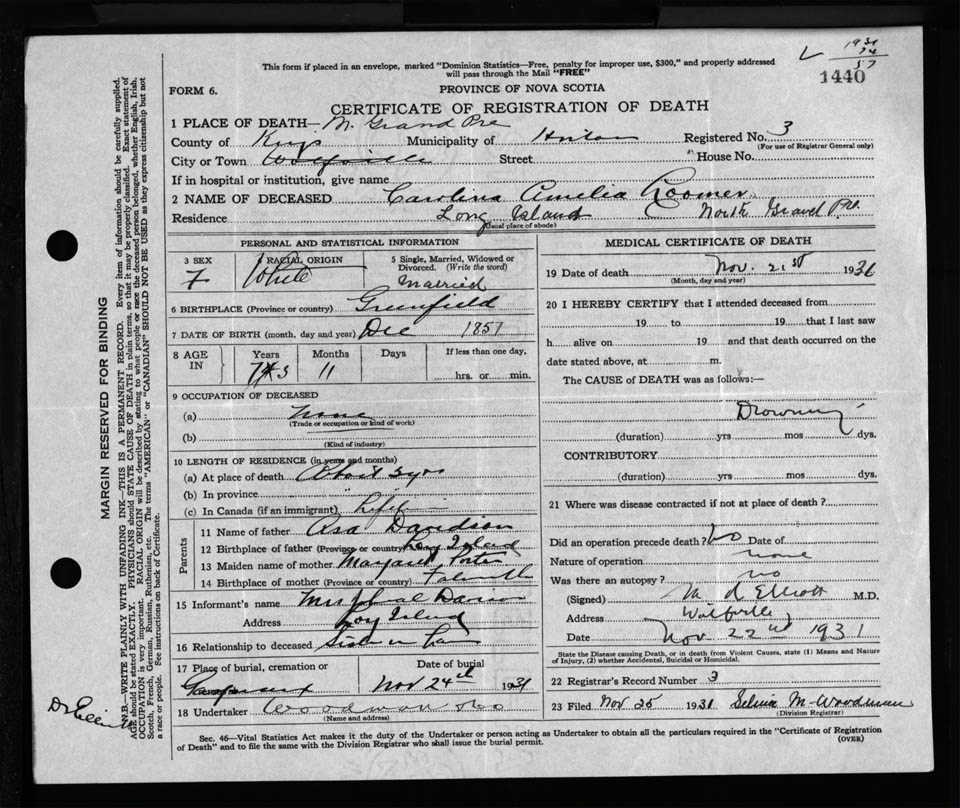 This form if placed in an envelope, marked "Dominion Statistics—Free, penalty for improper use, $300," and properly addressed
will pass through the Mail "FREE"
1931
57
1440
FORM 6.
PROVINCE OF NOVA SCOTIA
CERTIFICATE OF REGISTRATION OF DEATH
1 PLACE OF DEATH— N. Grand Pre
County of Kings Municipality of Horton Registered No. 3
(For use of Registrar General only)
City or Town Wolfville Street House No.
If in hospital or institution, give name
2 NAME OF DECEASED Carolina Amelia Coomer
Residence Long Island North Grand Pre
(Usual place of abode)
PERSONAL AND STATISTICAL INFORMATION
3 SEX 4 RACIAL ORIGIN 5 Single, Married, Widowed or
Divorced. (Write the word)
F White Married
6 BIRTHPLACE (Province or country) Greenfield
7 DATE OF BIRTH (month, day and year) Dec 1857
8 AGE IN Years Months Days If less than one day,
73 11 hrs. or min.
9 OCCUPATION OF DECEASED
(a) None
(Trade or occupation or kind of work)
(b)
(Kind of industry)
10 LENGTH OF RESIDENCE (in years and months)
(a) At place of death About yrs
(b) In province
(c) In Canada (if an immigrant) Life
Parents
11 Name of father Asa Davidson
12 Birthplace of father (Province or country) Long Island
13 Maiden name of mother Margaret Porter
14 Birthplace of mother (Province or country) Falmouth
15 Informant's name Mrs
Address Long Island
16 Relationship to deceased Sister in Law
17 Place of burial, cremation or Date of burial
Nov 24th 1931
18 Undertaker Woodman
(Name and address)
MEDICAL CERTIFICATE OF DEATH
19 Date of death Nov. 21st 1931
(Month, day and year)
20 I HEREBY CERTIFY that I attended deceased from
19 to 19 that I last saw
h alive on 19 and that death occurred on the
date stated above, at m.
The CAUSE of DEATH was as follows:—
Drowning
(duration) yrs mos dys.
CONTRIBUTORY
(duration) yrs mos dys.
21 Where was disease contracted if not at place of death?
Did an operation precede death? No Date of
Nature of operation none
Was there an autopsy? no
(Signed) Elliott M.D.
Address Wolfville
Date Nov 22nd 1931
State the Disease causing Death, or in death from Violent Causes, state (1) Means and Nature
of Injury, (2) whether Accidental, Suicidal or Homicidal.
22 Registrar's Record Number 3
23 Filed Nov 25 1931 Selina M. Woodman
(Division Registrar)
Sec. 46—Vital Statistics Act makes it the duty of the Undertaker or person acting as Undertaker to obtain all the particulars required in the "Certificate of Registration
of Death" and to file the same with the Division Registrar who shall issue the burial permit. (OVER)
MARGIN RESERVED FOR BINDING
N.B.—WRITE PLAINLY WITH UNFADING INK—THIS IS A PERMANENT RECORD. Every item of information should be carefully supplied.
AGE should be stated EXACTLY. PHYSICIANS should STATE CAUSE OF DEATH in plain terms, so that it may be properly classified. Exact statement of
OCCUPATION is very important. RACIAL ORIGIN will be described by stating to what people or race the deceased person belonged, whether English, Irish,
Scotch, French, German, Russian, Ruthenian, etc. The terms "AMERICAN" or "CANADIAN" SHOULD NOT BE USED as they express citizenship but not
a race or people. See instructions on back of Certificate.